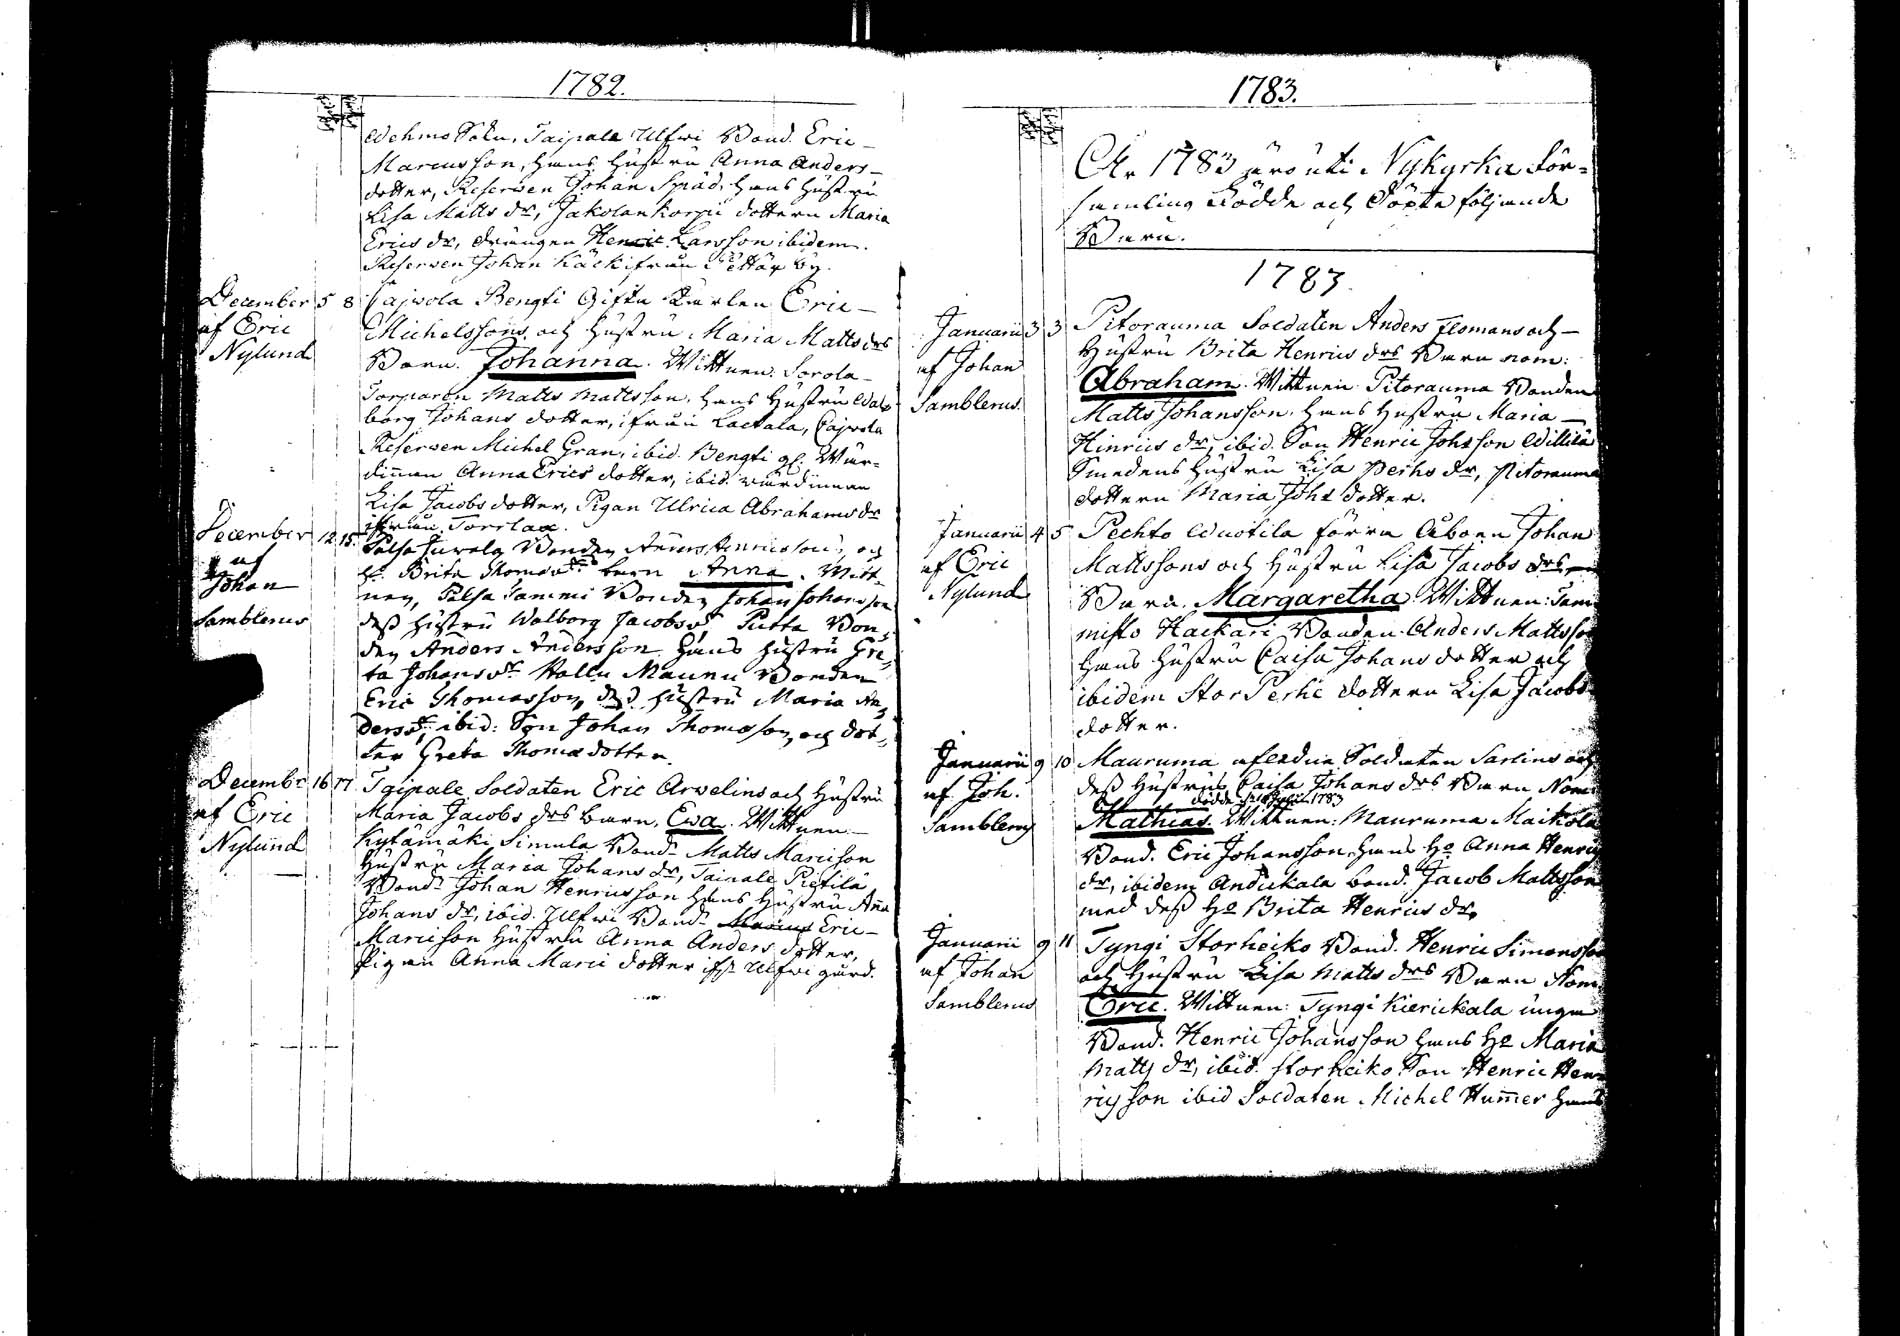 1782.
Wehmo Sokn, Taipale Ulfwi Bond. Eric
Marcusson, hans Hustru Anna Anders-
dotter, Reserven Johan Spåd, hans Hustru
Lisa Matts dr, Jakolankorpi dottern Maria
Erics dr, drängen Henric Larsson ibidem.
Reserven Johan Käck ifrån by.
December 5 8 Cajvola Bengti Gifta Karlen Eric
af Eric Michelssons och Hustru Maria Matts drs
Nylund Barn. Johanna. Wittnen. Sorola
Torparen Matts Mattsson, hans Hustru Wal-
borg Johans dotter, ifrån Laetala, Cajvola
Reserven Michel Gran, ibid. Bengti gl. Wär-
dinnan Anna Erics dotter, ibid. wärdinnan
Lisa Jacobs dotter, Pigan Ulrica Abrahams dr
ifrån Torrlax.
December 12 15. Palsa Juvela Bonden Henricssons, och
af h. Brita Thomas drs barn Anna. Witt-
Johan nen, Palsa Tammi Bonden Johan Johansson
Samblerus dess hustru Walborg Jacobs dr Putta Bon-
den Anders Andersson hans hustru Gre-
ta Johans dr Hallu Maunu Bonden
Eric Thomasson, dess hustru Maria An-
ders dr, ibid: Son Johan Thomasson, och dot-
ter Greta Thomas dotter.
Decembr 16 17 Taipale Soldaten Eric Arvelins och Hustru
af Eric Maria Jacobs drs barn, Ewa. Wittnen
Nylund Kytämäki Simula Bond. Matts Marcisson
Hustru Maria Johans dr, Taipale Pietilä
Bond. Johan Henricsson hans Hustru Aña
Johans dr, ibid. Ulfwi Bond. Marcus Eric
Maricson Hustru Anna Anders dotter,
Pigan Anna Marci dotter ifr. Ulfwi gård.
1783.
Åhr 1783 äro uti Nykyrka För-
samling Födde och Döpte följande
Barn.
1783.
Januarii 3 3 Pitorauma Soldaten Anders Flomans och
af Johan Hustru Brita Henrics drs Barn nom:
Samblerus. Abraham. Wittnen Pitorauma Bonden
Matts Johansson, hans Hustru Maria
Hinrics dr, ibid. Son Henric Johsson Willilä
Smedens Hustru Lisa Perhs dr, Pitorauma
dottern Maria Johs dotter.
Januarii 4 5 Pechto Wuotila förra Åboen Johan
af Eric Mattssons och Hustru Lisa Jacobs drs
Nylund Barn. Margaretha. Wittnen: Tam
misto Hackari Bonden Anders Mattsson
hans Hustru Caisa Johans dotter och
ibidem Stor Perhe dottern Lisa Jacobs
dotter.
Januarii 9 10 Mauruma afledne Soldaten Sarlins och
af Joh. dess Hustrus Caisa Johans drs Barn Nom:
dödde 1783
Samblerus Mathias. Wittnen: Mauruma Maikola
Bond. Eric Johansson hans Ho Anna Henrics
dr, ibidem Andickala bond. Jacob Mattsson
med dess Ho Brita Henrics dr,
Januarii 9 11 Tyngi Storheiko Bond. Henric Simonsson
af Johan och Hustru Lisa Matts drs Barn Nom.
Samblerus Eric. Wittnen: Tyngi Kierickala unga
Bond. Henric Johansson hans Ho Maria
Matts dr, ibid. Storheiko Son Henric Hen-
ricsson ibid Soldaten Michel Hum̄er hans